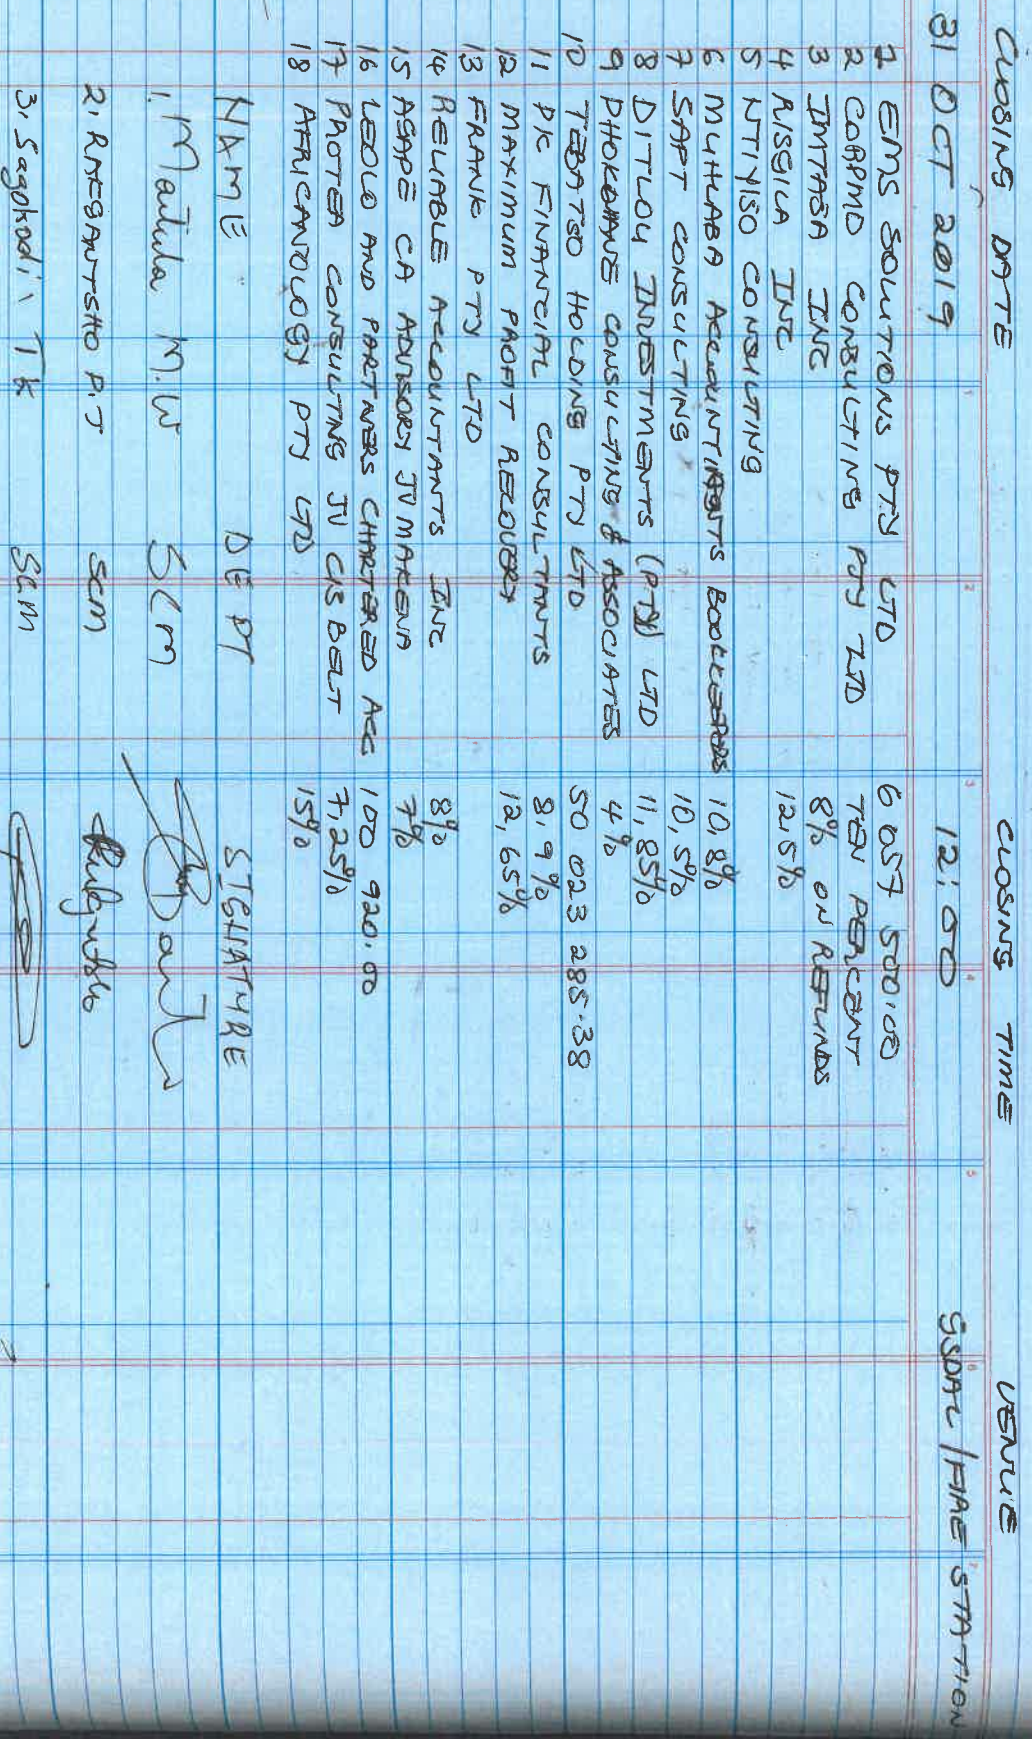 CLOSING DATE CLOSING TIME VENUE
31 OCT 2019 12:00 GSDAC / FIRE STATION
1 EMS SOLUTIONS PTY LTD 6 057 500.00
2 CORPMD CONSULTING PTY LTD TEN PERCENT
3 IMTASA INC 8% ON REFUNDS
4 RISGILA INC 12,5%
5 NTIYISO CONSULTING
6 MUHLABA ACCOUNTANTS BOOKKEEPERS 10,8%
7 SAPT CONSULTING 10,5%
8 DITLOU INVESTMENTS (PTY) LTD 11,85%
9 PHOKOANE CONSULTING & ASSOCIATES 4%
10 TEBATSO HOLDING PTY LTD 50 023 285.38
11 PK FINANCIAL CONSULTANTS 8,9%
12 MAXIMUM PROFIT RECOVERY 12,65%
13 FRANK PTY LTD
14 RELIABLE ACCOUNTANTS INC 8%
15 AGAPE CA ADVISORY JV MAKENA 7%
16 LEOLO AND PARTNERS CHARTERED ACC 100 920.00
17 PROTEA CONSULTING JV CIS BELT 7,25%
18 AFRICANOLOGY PTY LTD 15%
NAME DEPT SIGNATURE
1. Matula M.W SCM
2. RAKGANTSHO P.J SCM
3. Sagokodi TK SCM